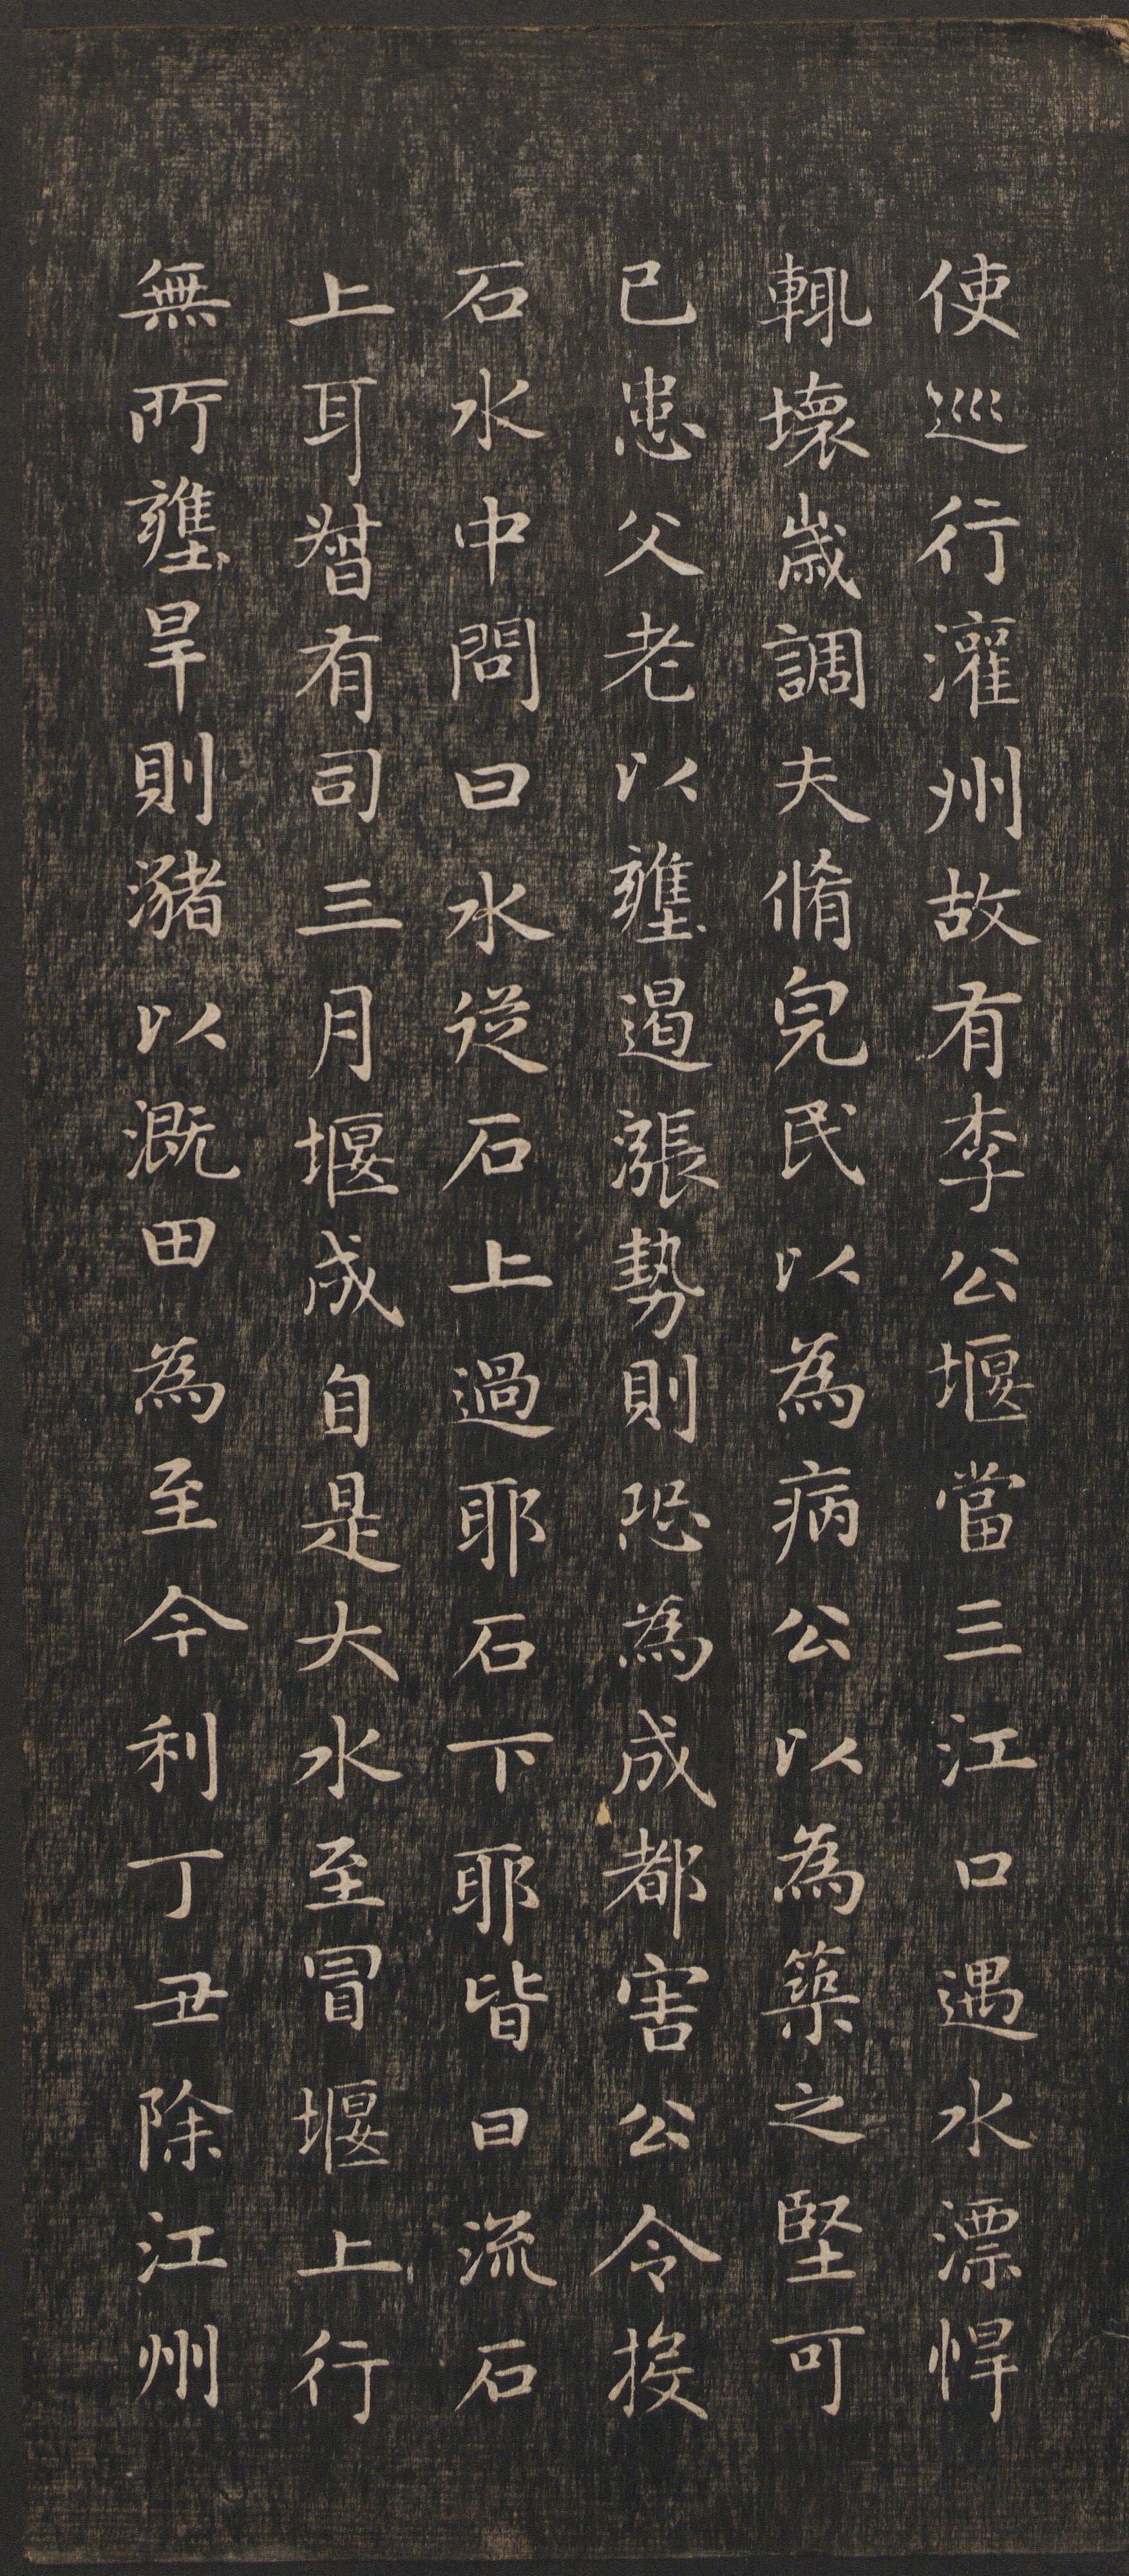 使巡行灌州故有李公堰當三江口遇水漂悍
輒壞歲調夫脩完民以為病公以為築之堅可
已患父老以壅遏漲勢則恐為成都害公令投
石水中問曰水從石上過耶石下耶皆曰流石
上耳督有司三月堰成自是大水至冒堰上行
無所壅旱則瀦以溉田為至今利丁丑除江州